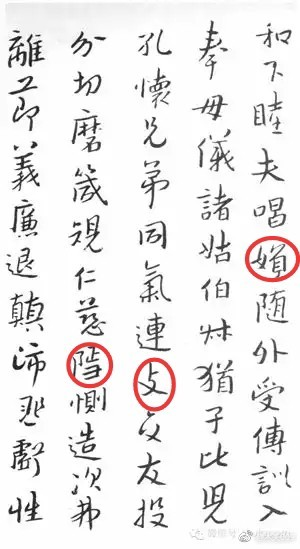 和下睦夫唱媍随外受傅訓入
奉母儀諸姑伯叔猶子比兒
孔懷兄弟同氣連支交友投
分切磨箴規仁慈隱惻造次弗
離節義廉退顛沛匪虧性
微信号